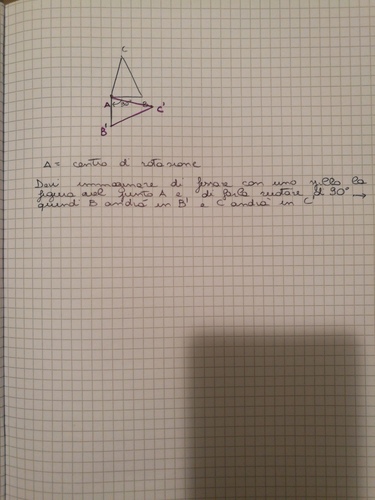 C
A 90° B C'
B'
A = centro di rotazione
Devi immaginare di fissare con uno spillo la
figura nel punto A e di farla ruotare di 90° →
quindi B andrà in B' e C andrà in C'